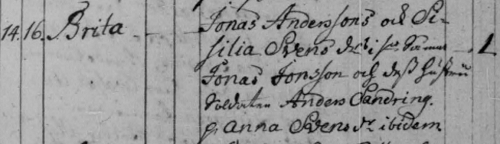 14. 16. Brita Jonas Anderssons och Ce-
silia Svens Dr i 1
Jonas Jonsson och deß hustru
Soldaten Anders Sandring.
p. Anna Svens Dr ibidem